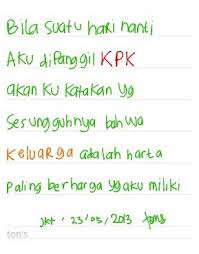 Bila suatu hari nanti
Aku diPanggil KPK
akan Ku Katakan Yg
Sesungguhnya bahwa
Keluarga adalah harta
Paling berharga Yg aku miliki
Jkt, 23/05/2013 tons
ton's